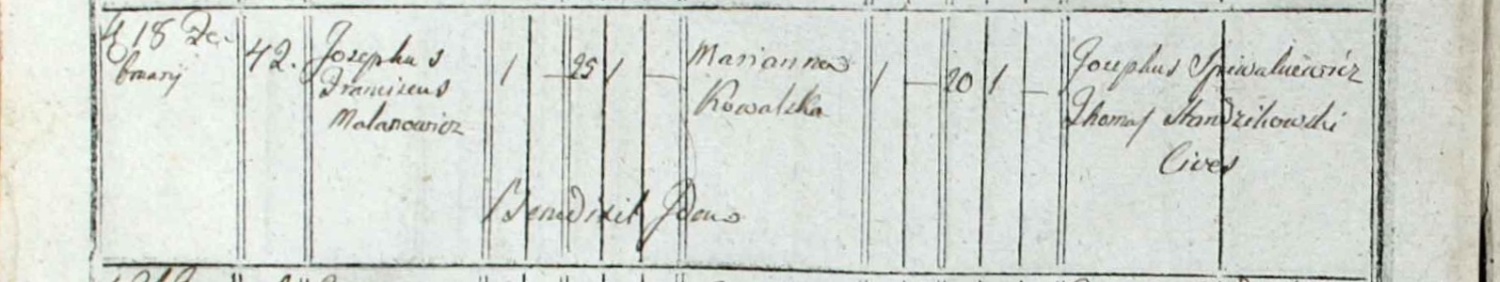 18 Fe-
bruarij
42.
Josephus
Franciscus
Malanowicz
1 — 25 1 —
Marianna
Kowalska
1 — 20 1 —
Josephus
Thomas
Cives
Benedixit Idem